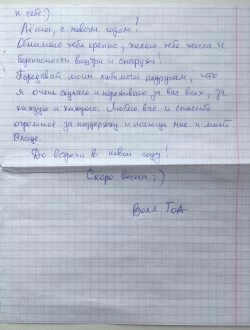 к себе:)
Лёша, с новым годом!
Обнимаю тебя крепко, желаю тебе тепла и
безопасности внутри и снаружи!
Передавай моим любимым подругам, что
я очень скучаю и переживаю за вас всех, за
каждую и каждого. Люблю вас и спасибо
огромное за поддержку и помощь мне и моей
Владе.
До встречи в новом году!
Скоро весна ;)
Волл Тод